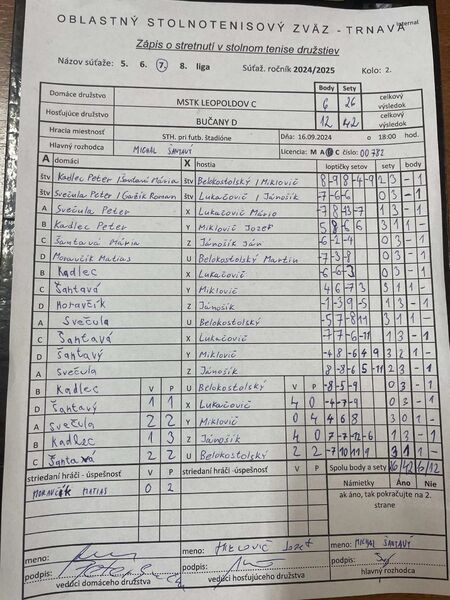 Internal
OBLASTNÝ STOLNOTENISOVÝ ZVÄZ - TRNAVA
Zápis o stretnutí v stolnom tenise družstiev
Názov súťaže: 5. 6. 7. 8. liga Súťaž. ročník 2024/2025 Kolo: 2.
Body Sety
Domáce družstvo MSTK LEOPOLDOV C 6 26 celkový výsledok
Hosťujúce družstvo BUČANY D 12 42 celkový výsledok
Hracia miestnosť STH. pri futb. štadióne Dňa: 16.09.2024 o 18:00 hod.
Hlavný rozhodca MICHAL ŠANTAVÝ Licencia: M A C číslo: 00782
A domáci X hostia loptičky setov sety body
štv Kadlec Peter / Šantavá Mária štv Belokostolský / Miklovič 8 -9 8 -4 -9 2 3 - 1
štv Svečula Peter / Garžik Roman štv Lukačovič / Jánošík -7 -6 -6 0 3 - 1
A Svečula Peter X Lukačovič Mário -7 8 -13 -7 1 3 - 1
B Kadlec Peter Y Miklovič Jozef 5 8 -6 6 3 1 1 -
C Šantavá Mária Z Jánošík Ján -6 -2 -4 0 3 - 1
D Moravčík Matias U Belokostolský Martin -7 -3 -8 0 3 - 1
B Kadlec X Lukačovič -6 -6 -3 0 3 - 1
C Šantavá Y Miklovič 4 6 -7 3 3 1 1 -
D Moravčík Z Jánošík -1 -3 9 -5 1 3 - 1
A Svečula U Belokostolský -5 7 8 11 3 1 1 -
C Šantavá X Lukačovič -7 7 -6 -11 1 3 - 1
D Šantavý Y Miklovič -4 8 -6 4 9 3 2 1 -
A Svečula Z Jánošík 8 -8 -6 5 -11 2 3 - 1
B Kadlec V P U Belokostolský V P -8 -5 -9 0 3 - 1
D Šantavý 1 1 X Lukačovič 4 0 -4 -7 -9 0 3 - 1
A Svečula 2 2 Y Miklovič 0 4 4 6 8 3 0 1 -
B Kadlec 1 3 Z Jánošík 4 0 7 -7 -12 -6 1 3 - 1
C Šantavá 2 2 U Belokostolský 2 2 -7 10 11 9 3 1 1 -
striedaní hráči - úspešnosť V P striedaní hráči -úspešnosť V P Spolu body a sety 26 42 6 12
MORAVČÍK MATIAS 0 2 Námietky Áno Nie
ak áno, tak pokračujte na 2. strane
meno: meno: MIKLOVIČ JOZEF meno: MICHAL ŠANTAVÝ
podpis: podpis: podpis:
vedúci domáceho družstva vedúci hosťujúceho družstva hlavný rozhodca